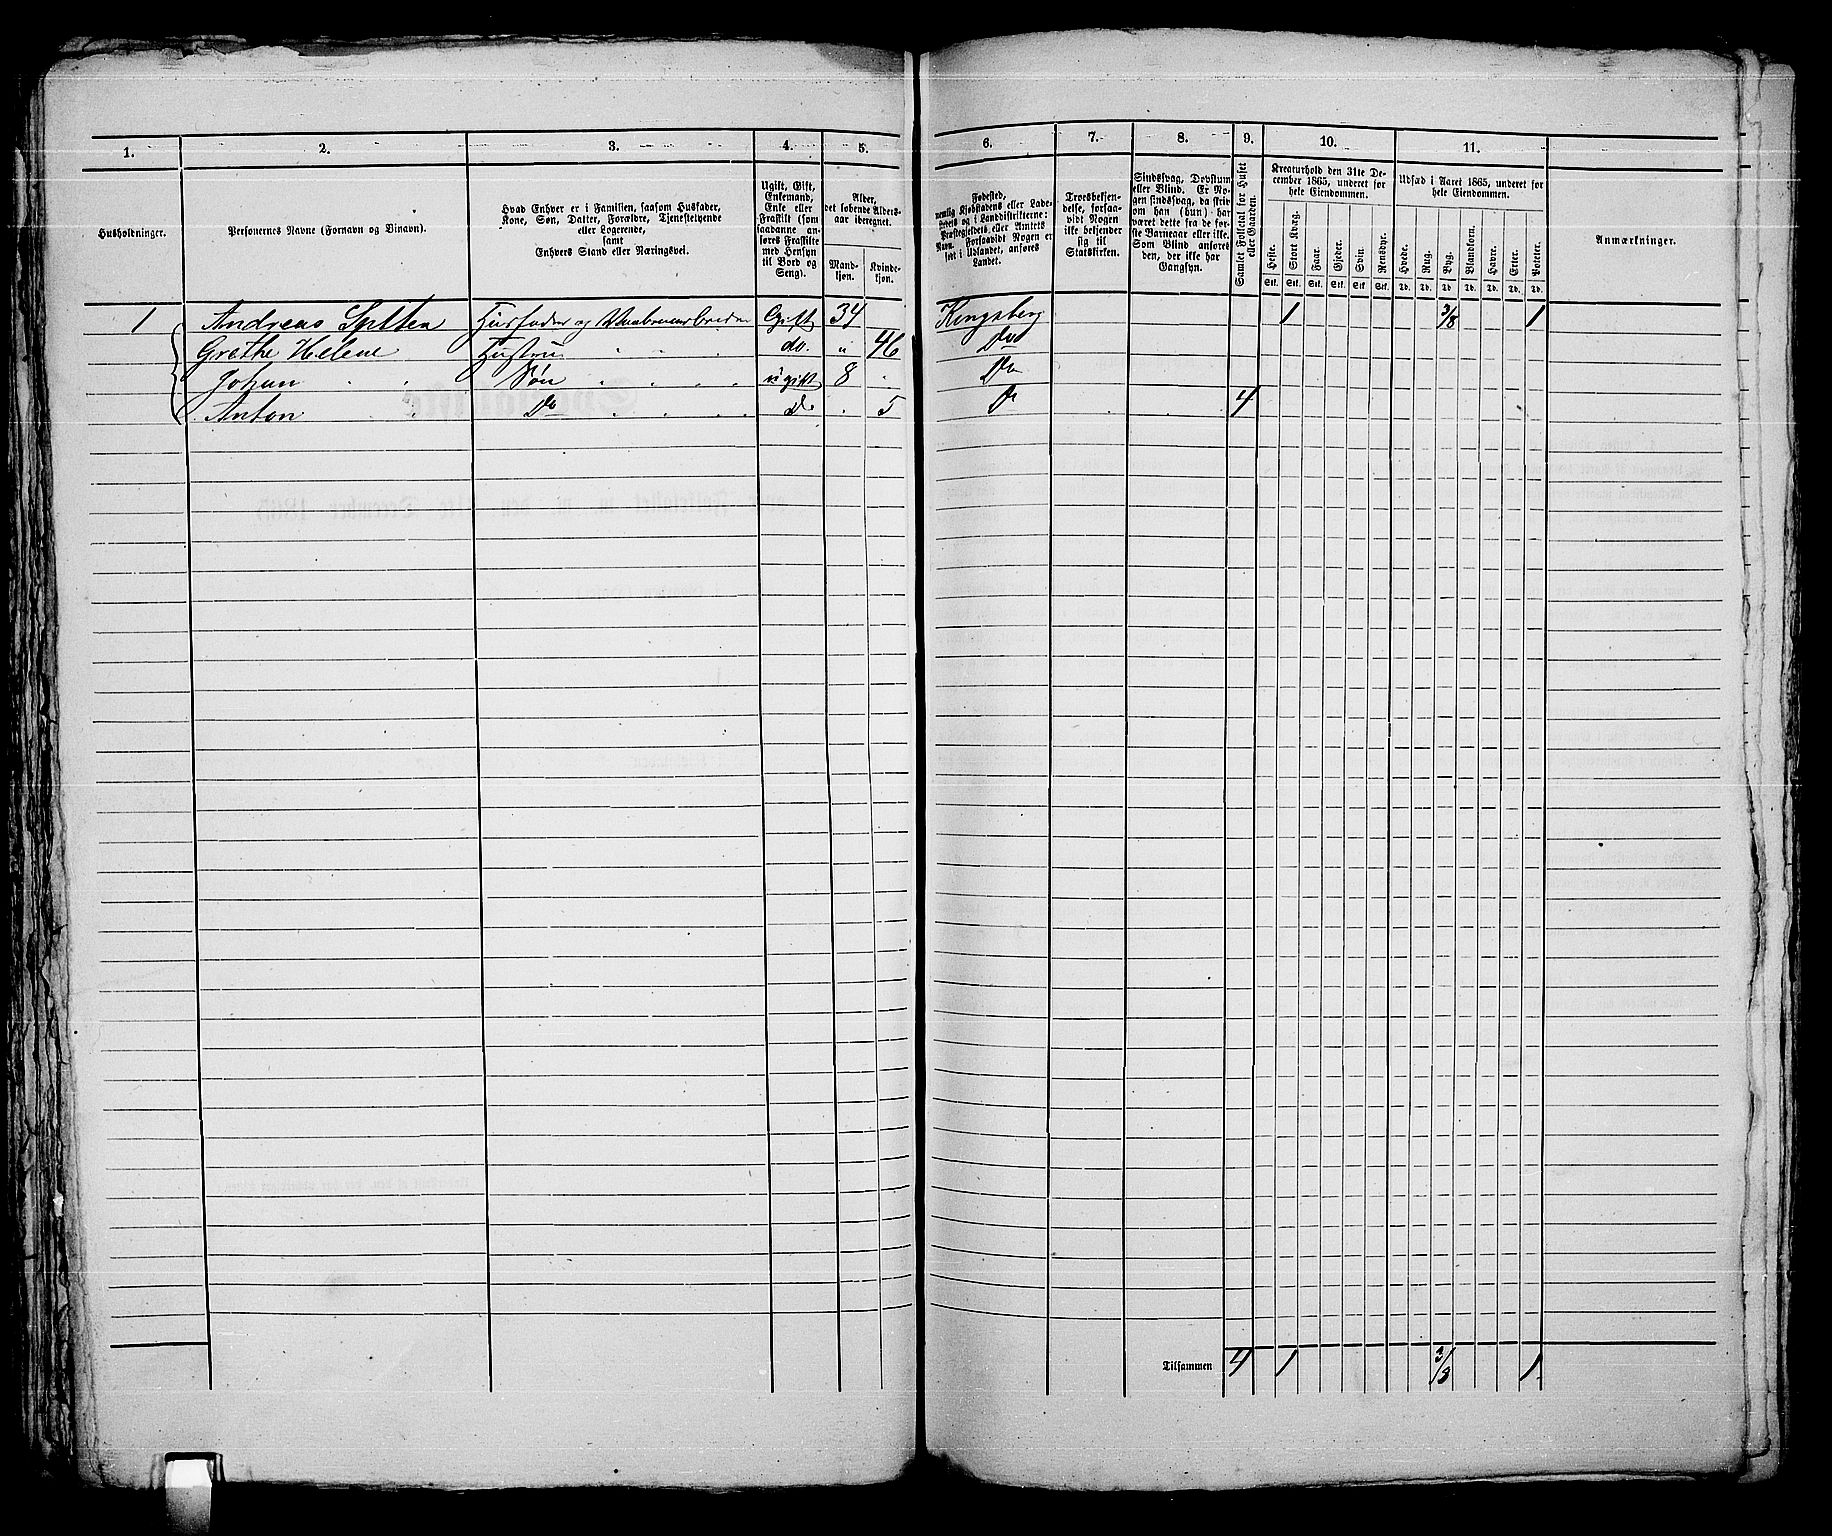 1.
2.
3.
4.
5.
Husholdninger.
Personernes Navne (Fornavn og Binavn).
Hvad Enhver er i Familien, saasom Husfader,
Kone, Søn, Datter, Forældre, Tjenestetyende
eller Logerende,
samt
Enhvers Stand eller Næringsvei.
Ugift, Gift,
Enkemand,
Enke eller
Fraskilt (som
saadanne an-
føres Fraskilte
med Hensyn
til Bord og
Seng).
Alder,
det løbende Alders-
aar iberegnet.
Mand-
kjøn.
Kvinde-
kjøn.
1 Andreas Husfader og Gift 34
Grethe Helene Hustru do. " 46
Johan Søn ugift 8
Anton Do Do 5
6.
7.
8.
9.
10.
11.
Fødested,
nemlig Kjøbstadens eller Lade-
stedets og i Landdistrikterne:
Præstegjeldets eller Amtets
Navn. Forsaavidt Nogen er
født i Udlandet, anføres
Landet.
Troesbekjen-
delse, forsaa-
vidt Nogen
ikke bekjender
sig til
Statskirken.
Sindssvag, Døvstum
eller Blind. Er No-
gen sindssvag, da skriv
om han (hun) har
været dette fra de før-
ste Barneaar eller ikke.
Som Blind anføres
den, der ikke har
Gangsyn.
Samlet Folketal for Huset
eller Gaarden.
Kreaturhold den 31te De-
cember 1865, underet for
hele Eiendommen.
Heste. Stort Kvæg. Faar. Gjeder. Svin. Rensdyr.
Stk. Stk. Stk. Stk. Stk. Stk.
Udsæd i Aaret 1865, underet for
hele Eiendommen.
Hvede. Rug. Byg. Blandkorn. Havre. Erter. Poteter.
Td. Td. Td. Td. Td. Td. Td.
Anmærkninger.
Kongsberg 1 3/8 1
Do
Do
Do 4
Tilsammen 4 1 1